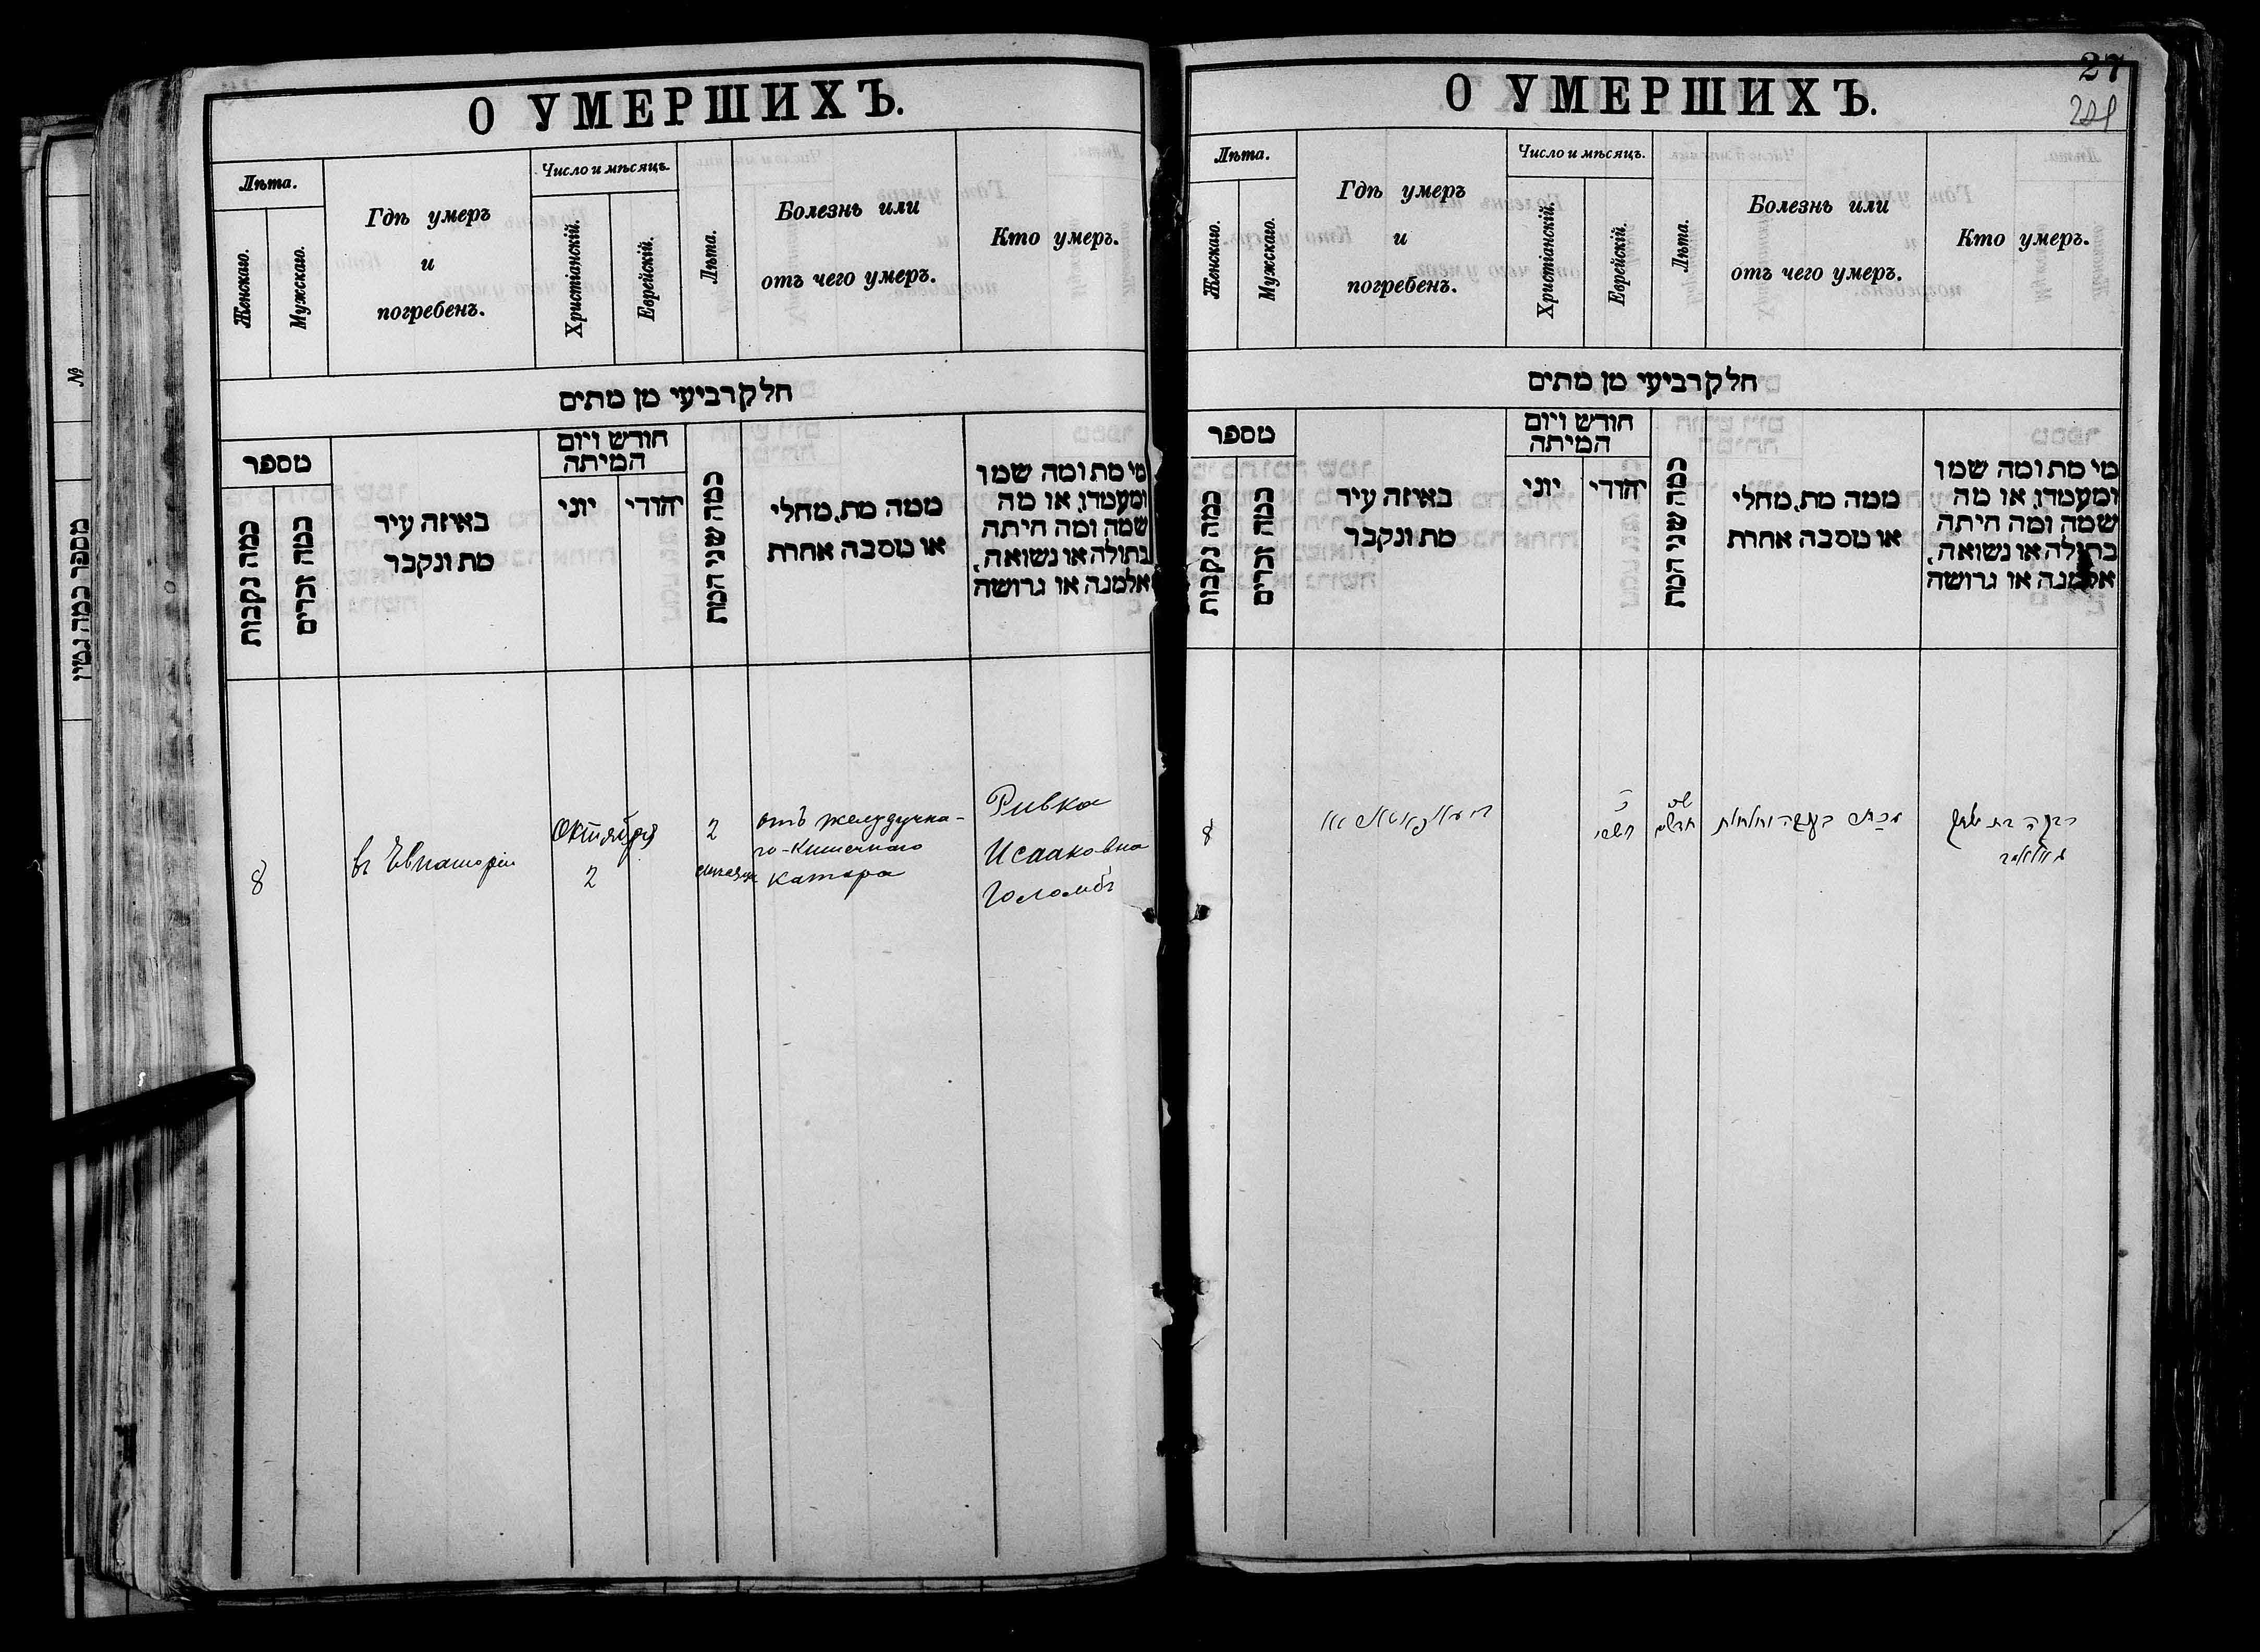 О УМЕРШИХЪ.
Лѣта.
Женскаго.
Мужскаго.
Гдѣ умеръ
и
погребенъ.
Число и мѣсяцъ.
Христіанскій.
Еврейскій.
Лѣта.
Болезнь или
отъ чего умеръ.
Кто умеръ.
חלק רביעי מן מתים
מספר
כמה נקבות
כמה זכרים
באיזה עיר
מת ונקבר
חודש ויום
המיתה
יוני
יהודי
כמה שני המת
ממה מת, מחלי
או מסבה אחרת
מי מת ומה שמו
ומעמדו, או מה
שמה ומה היתה
בתולה או נשואה,
אלמנה או גרושה
8
въ Евпаторіи
Октября
2
2
месяца
отъ желудучна-
го-Кишечного
катара
Ривка
Исааковна
Голомбъ
27
О УМЕРШИХЪ.
Лѣта.
Женскаго.
Мужскаго.
Гдѣ умеръ
и
погребенъ.
Число и мѣсяцъ.
Христіанскій.
Еврейскій.
Лѣта.
Болезнь или
отъ чего умеръ.
Кто умеръ.
חלק רביעי מן מתים
מספר
כמה נקבות
כמה זכרים
באיזה עיר
מת ונקבר
חודש ויום
המיתה
יוני
יהודי
כמה שני המת
ממה מת, מחלי
או מסבה אחרת
מי מת ומה שמו
ומעמדו, או מה
שמה ומה היתה
בתולה או נשואה,
אלמנה או גרושה
8
רבקה בת יצחק
№
מספר כמה נמין